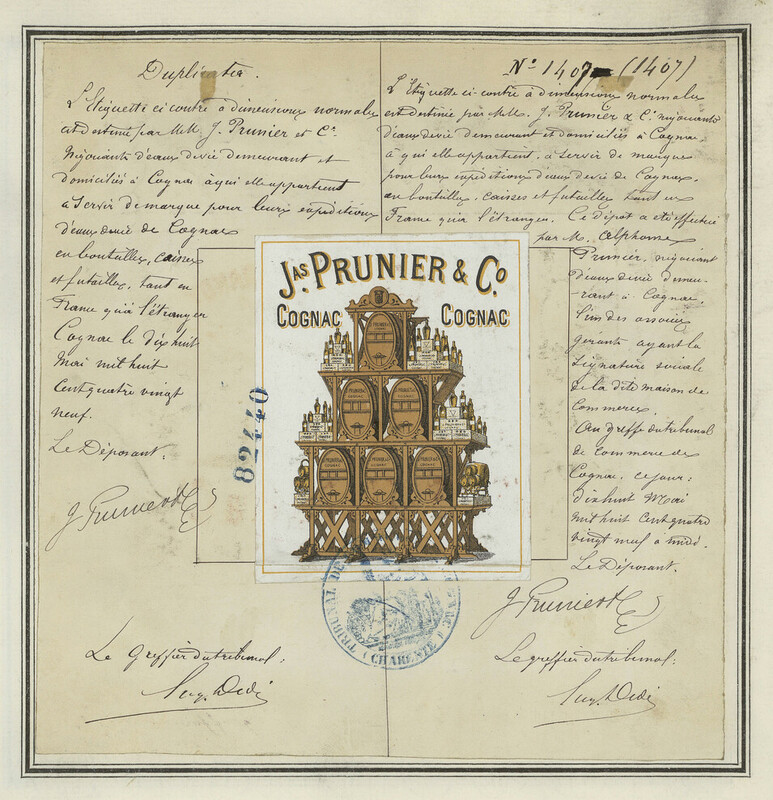 Duplicata.
L'Etiquette ci contre à dimensions normales
est destiné par MM. J. Prunier et Cie
Négociants d'eaux de vie demeurant et
domiciliés à Cognac à qui elle appartient
à servir de marque pour leurs expéditions
d'eaux de vie de Cognac
en bouteilles, caisses
et futailles, tant en
France qu'à l'étranger
Cognac le dix huit
Mai mil huit
Cent quatre vingt
neuf.
Le Déposant:
J Prunier & Co
Le Greffier du tribunal:
No 1407 (1407)
L'Etiquette ci contre à dimensions normales
est destinée par MM. J. Prunier & Cie négociants
d'eaux de vie demeurant et domiciliés à Cognac
à qui elle appartient, à servir de marque
pour leurs expéditions d'eaux de vie de Cognac,
en bouteilles, caisses et futailles tant en
France qu'à l'étranger. Ce dépôt a été effectué
par M. Alphonse
Prunier, négociant
d'eaux de vie demeu-
rant à Cognac,
l'un des associés
gérants ayant la
signature sociale
de la dite maison de
Commerce.
Au greffe du tribunal
de commerce de
Cognac, ce jour:
dix huit Mai
mil huit cent quatre
vingt neuf à midi.
Le Déposant.
J Prunier & Co
Le greffier du tribunal:
JAS PRUNIER & CO
COGNAC COGNAC
PRUNIER & Co
COGNAC
82440
TRIBUNAL DE
CHARENTE